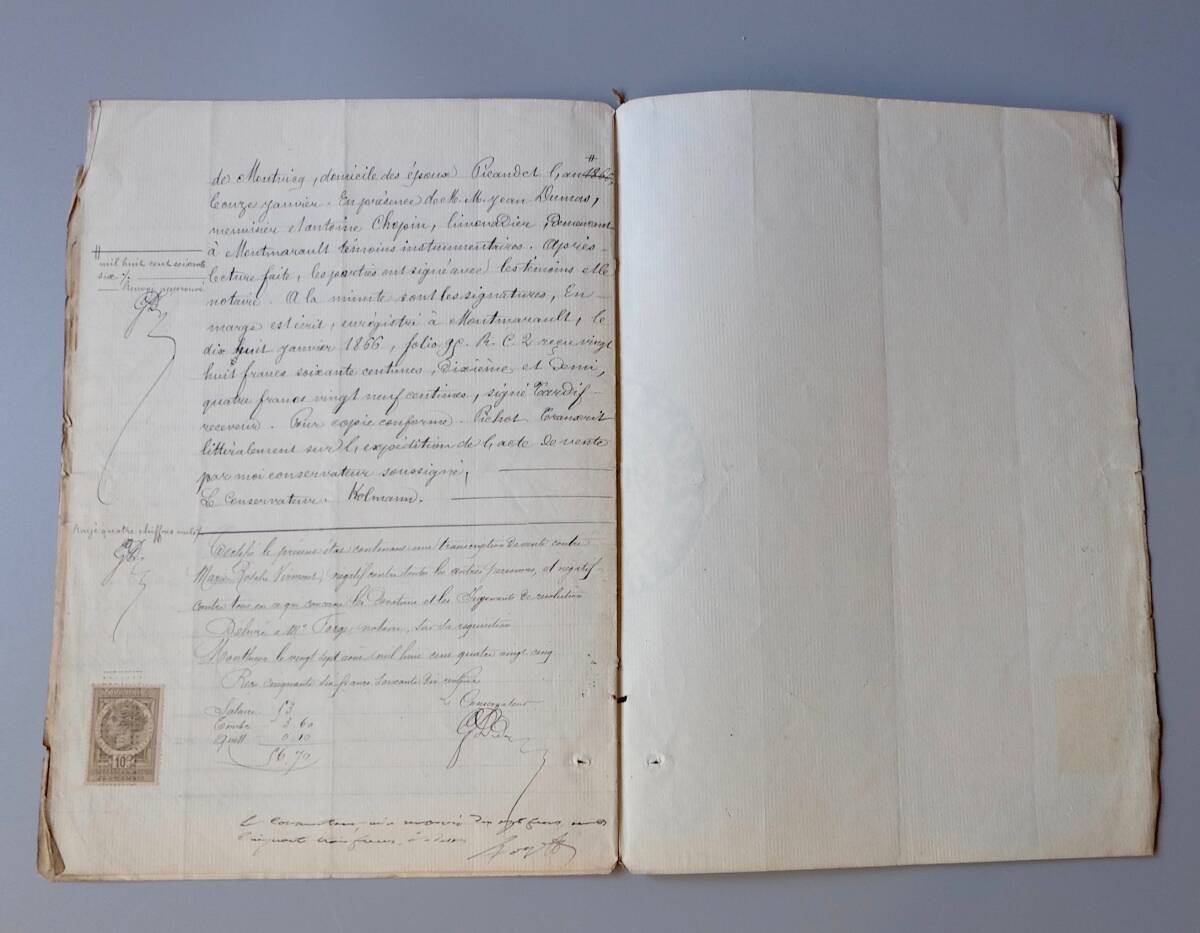 de Montvicq, domicile des époux Picandet L'an 1866,
#
Couze janvier. En présence de M. M. Jean Dumas,
menuisier et Antoine Chopin, limonadier, Demeurant
à Montmarault témoins instrumentaires. Après
lecture faite, les parties ont signé avec les témoins et le
notaire. A la minute sont les signatures, En
marge est écrit, enrégistré à Montmarault, le
dix huit janvier 1866, folio 9 R. C. 2 reçu vingt
huit francs soixante centimes, Dixième et Demi,
quatre francs vingt neuf centimes, signé Tardif
receveur. Pour copie conforme. Pichot Transcrit
littéralement sur l'expédition de l'acte de vente
par moi conservateur soussigné,
Le Conservateur. Kolmann.
#
mil huit cent soixante
six
Renvoi approuvé
Rayé quatre chiffres nuls
Certifié le présent état contenant une transcription de vente contre
Marie Rosalie négatif contre toutes les autres personnes, et négatif
contre tous en ce qui concerne les Donations et les Jugements de résolution
Délivré à Me Forge notaire, sur sa requisition
Montluçon le vingt sept août mil huit cent quatre vingt cinq
Reçu cinquante six francs soixante dix centimes
Le Conservateur
Salaire 53
Timbre 3,60
Quitt 0,10
56,70
10c
Le Conservateur
Cinquante trois francs,